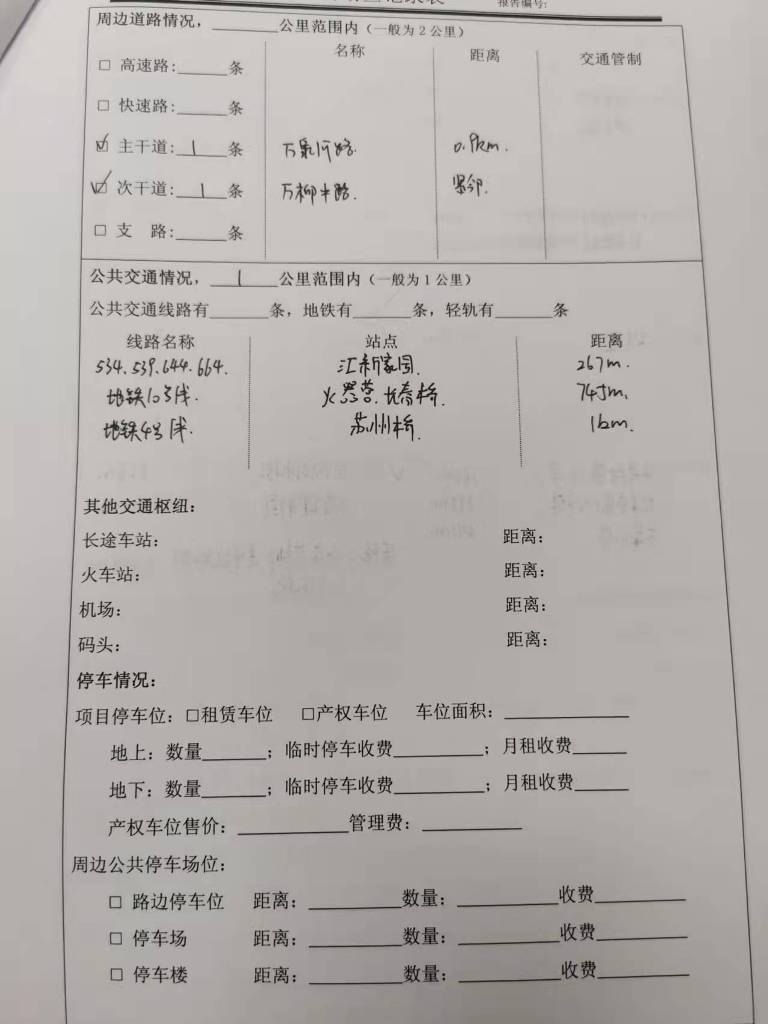 报告编号:
周边道路情况，______公里范围内（一般为2公里）
名称 距离 交通管制
□ 高速路:_____条
□ 快速路:_____条
☑ 主干道:__1__条 万泉河路. 0.9km.
☑ 次干道:__1__条 万柳中路. 紧邻.
□ 支 路:_____条
公共交通情况，__1__公里范围内（一般为1公里）
公共交通线路有______条，地铁有______条，轻轨有______条
线路名称 站点 距离
534.539.644.664. 267m.
地铁10号线. 火器营.长春桥. 745m.
地铁4号线. 苏州桥. 1km.
其他交通枢纽:
长途车站: 距离:
火车站: 距离:
机场: 距离:
码头: 距离:
停车情况:
项目停车位: □租赁车位 □产权车位 车位面积:____________
地上: 数量______; 临时停车收费________; 月租收费_____
地下: 数量______; 临时停车收费________; 月租收费_____
产权车位售价: __________管理费: _________
周边公共停车场位:
□ 路边停车位 距离: ________数量: _________收费________
□ 停车场 距离: ________数量: _________收费________
□ 停车楼 距离: ________数量: _________收费________